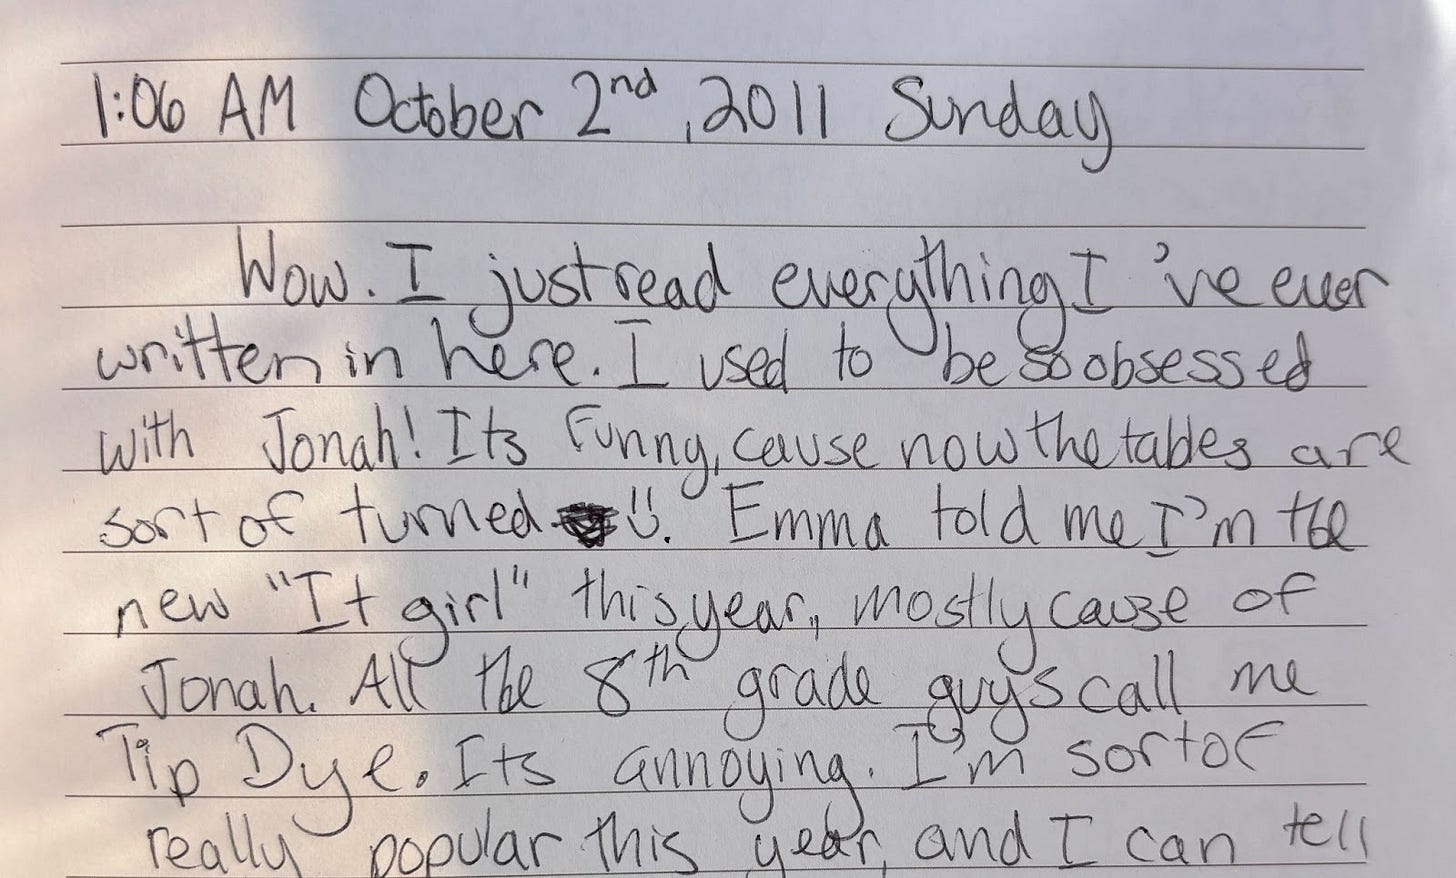 1:06 AM October 2nd, 2011 Sunday
Wow. I just read everything I 've ever
written in here. I used to be so obsessed
with Jonah! Its funny, cause now the tables are
sort of turned :). Emma told me I'm the
new "It girl" this year, mostly cause of
Jonah. All the 8th grade guys call me
Tip Dye. Its annoying. I'm sort of
really popular this year, and I can tell